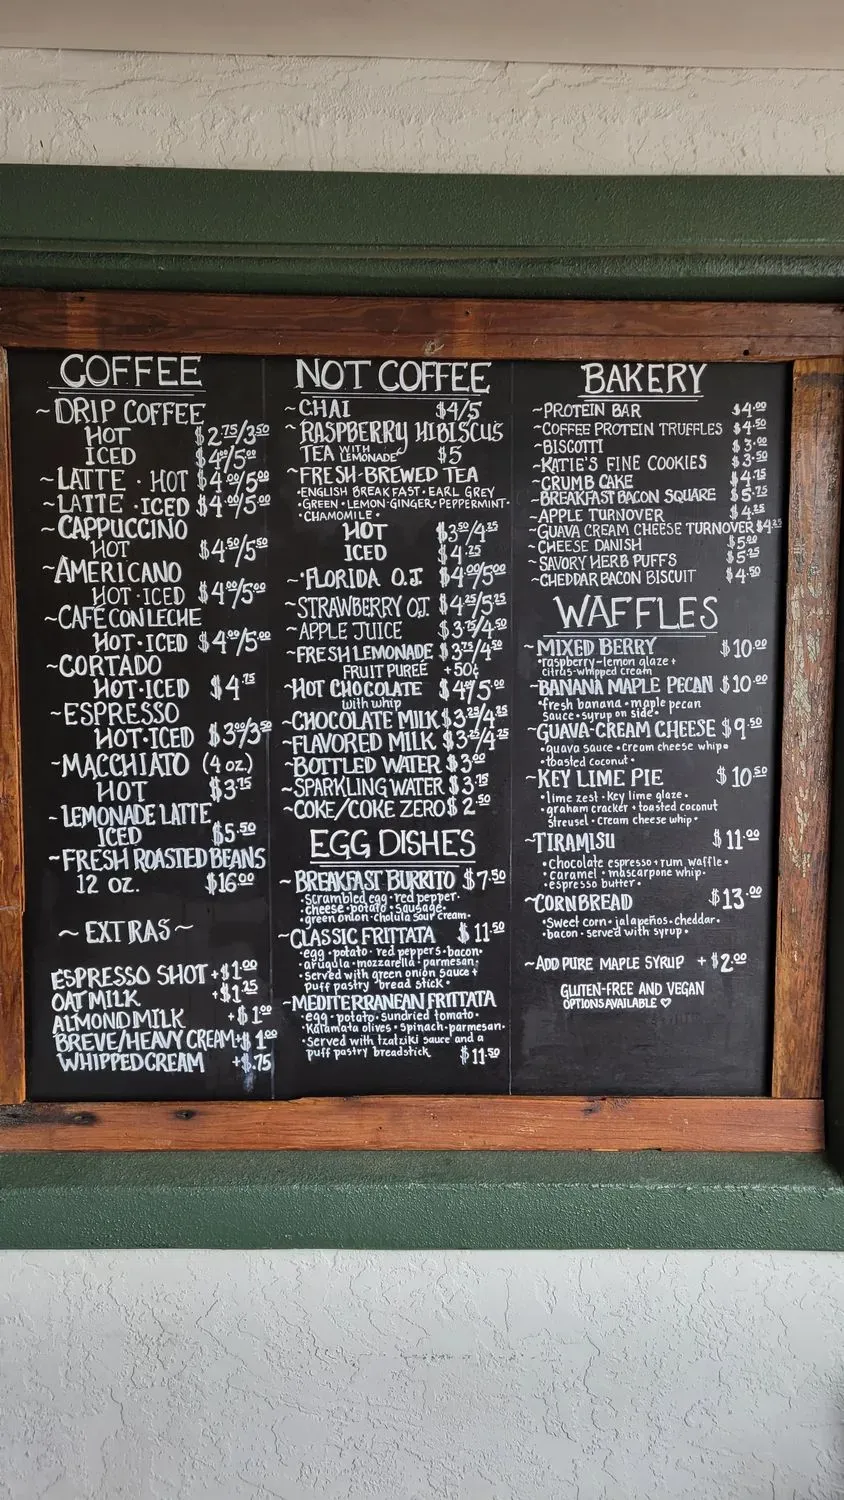 COFFEE
~DRIP COFFEE
HOT $2.75/3.50
ICED $4.00/5.00
~LATTE · HOT $4.00/5.00
~LATTE · ICED $4.00/5.00
~CAPPUCCINO
HOT $4.50/5.50
~AMERICANO
HOT·ICED $4.00/5.00
~CAFÉ CON LECHE
HOT·ICED $4.00/5.00
~CORTADO
HOT·ICED $4.75
~ESPRESSO
HOT·ICED $3.00/3.50
~MACCHIATO (4 oz.)
HOT $3.75
~LEMONADE LATTE
ICED $5.50
~FRESH ROASTED BEANS
12 OZ. $16.00
~ EXTRAS ~
ESPRESSO SHOT +$1.00
OAT MILK +$1.25
ALMOND MILK +$1.00
BREVE/HEAVY CREAM +$1.00
WHIPPED CREAM +$.75
NOT COFFEE
~CHAI $4/5
~RASPBERRY HIBISCUS
TEA WITH LEMONADE $5
~FRESH-BREWED TEA
·ENGLISH BREAKFAST·EARL GREY
·GREEN·LEMON-GINGER·PEPPERMINT·
·CHAMOMILE·
HOT $3.50/4.25
ICED $4.25
~·FLORIDA O.J $4.00/5.00
~STRAWBERRY O.J. $4.25/5.25
~APPLE JUICE $3.75/4.50
~FRESH LEMONADE $3.75/4.50
FRUIT PUREÉ +50¢
~HOT CHOCOLATE $4.00/5.00
with whip
~CHOCOLATE MILK $3.25/4.25
~FLAVORED MILK $3.25/4.25
~BOTTLED WATER $3.00
~SPARKLING WATER $3.75
~COKE/COKE ZERO $2.50
EGG DISHES
~BREAKFAST BURRITO $7.50
·Scrambled egg·red pepper·
·cheese·potato·sausage·
·green onion·cholula sour cream·
~CLASSIC FRITTATA $11.50
·egg·potato·red peppers·bacon·
·arugula·mozzarella·parmesan·
·Served with green onion sauce+
puff pastry bread stick·
~MEDITERRANEAN FRITTATA
·egg·potato·sundried tomato·
·Kalamata olives·spinach·parmesan·
·Served with tzatziki sauce and a
puff pastry breadstick $11.50
BAKERY
~PROTEIN BAR $4.00
~COFFEE PROTEIN TRUFFLES $4.50
~BISCOTTI $3.00
~KATIE'S FINE COOKIES $3.50
~CRUMB CAKE $4.75
~BREAKFAST BACON SQUARE $5.75
~APPLE TURNOVER $4.25
~GUAVA CREAM CHEESE TURNOVER $4.25
~CHEESE DANISH $5.00
~SAVORY HERB PUFFS $5.25
~CHEDDAR BACON BISCUIT $4.50
WAFFLES
~MIXED BERRY $10.00
·raspberry-lemon glaze +
citrus-whipped cream
~BANANA MAPLE PECAN $10.00
·fresh banana·maple pecan
sauce·syrup on side·
~GUAVA-CREAM CHEESE $9.50
·guava sauce·cream cheese whip·
·toasted coconut·
~KEY LIME PIE $10.50
·lime zest·Key lime glaze·
·graham cracker+toasted coconut
streusel·cream cheese whip·
~TIRAMISU $11.00
·Chocolate espresso+rum waffle·
·caramel·mascarpone whip·
·espresso butter·
~CORNBREAD $13.00
·Sweet corn·jalapeños·cheddar·
·bacon·served with syrup·
~ADD PURE MAPLE SYRUP +$2.00
GLUTEN-FREE AND VEGAN
OPTIONS AVAILABLE ♡